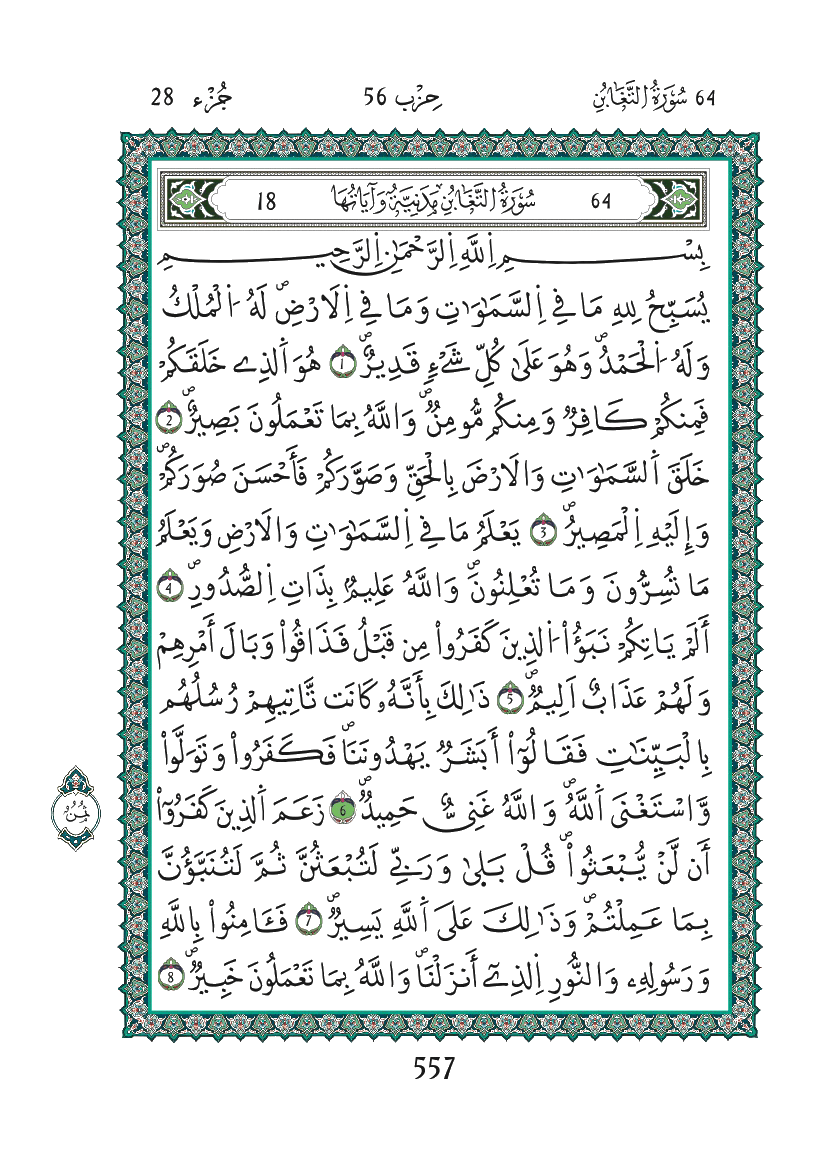 64 سُورَةُ التَّغَابُنِ حِزْب 56 جُزْء 28
64 سُورَةُ التَّغَابُنِ مَدَنِيَّةٌ وَآيَاتُهَا 18
بِسْمِ اِللَّهِ اِلرَّحْمَٰنِ اِلرَّحِيمِ
يُسَبِّحُ لِلهِ مَا فِے اِلسَّمَٰوَٰتِ وَمَا فِے اِلَارْضِۖ لَهُ اُ۬لْمُلْكُ
وَلَهُ اُ۬لْحَمْدُۖ وَهُوَ عَلَىٰ كُلِّ شَےْءٖ قَدِيرٌۖ 1 هُوَ اَ۬لذِے خَلَقَكُمْ
فَمِنكُمْ كَافِرٞ وَمِنكُم مُّومِنٞۖ وَاللَّهُ بِمَا تَعْمَلُونَ بَصِيرٌۖ 2
خَلَقَ اَ۬لسَّمَٰوَٰتِ وَالَارْضَ بِالْحَقِّ وَصَوَّرَكُمْ فَأَحْسَنَ صُوَرَكُمْۖ
وَإِلَيْهِ اِ۬لْمَصِيرُۖ 3 يَعْلَمُ مَا فِے اِ۬لسَّمَٰوَٰتِ وَالَارْضِ وَيَعْلَمُ
مَا تُسِرُّونَ وَمَا تُعْلِنُونَۖ وَاللَّهُ عَلِيمُۢ بِذَاتِ اِ۬لصُّدُورِۖ 4
أَلَمْ يَاتِكُمْ نَبَؤُاْ اُ۬لذِينَ كَفَرُواْ مِن قَبْلُ فَذَاقُواْ وَبَالَ أَمْرِهِمْ
وَلَهُمْ عَذَابٌ اَلِيمٞۖ 5 ذَٰلِكَ بِأَنَّهُۥ كَانَت تَّاتِيهِمْ رُسُلُهُم
بِالْبَيِّنَٰتِ فَقَالُوٓاْ أَبَشَرٞ يَهْدُونَنَاۖ فَكَفَرُواْ وَتَوَلَّواْ
وَّاسْتَغْنَى اَ۬للَّهُۖ وَاللَّهُ غَنِيٌّ حَمِيدٞۖ 6 زَعَمَ اَ۬لذِينَ كَفَرُوٓاْ
أَن لَّنْ يُّبْعَثُواْۖ قُلْ بَلَىٰ وَرَبِّے لَتُبْعَثُنَّ ثُمَّ لَتُنَبَّؤُنَّ
بِمَا عَمِلْتُمْۖ وَذَٰلِكَ عَلَى اَ۬للَّهِ يَسِيرٞۖ 7 فَـَٔامِنُواْ بِاللَّهِ
وَرَسُولِهِۦ وَالنُّورِ اِ۬لذِےٓ أَنزَلْنَاۖ وَاللَّهُ بِمَا تَعْمَلُونَ خَبِيرٞۖ 8
ثُمُن
557